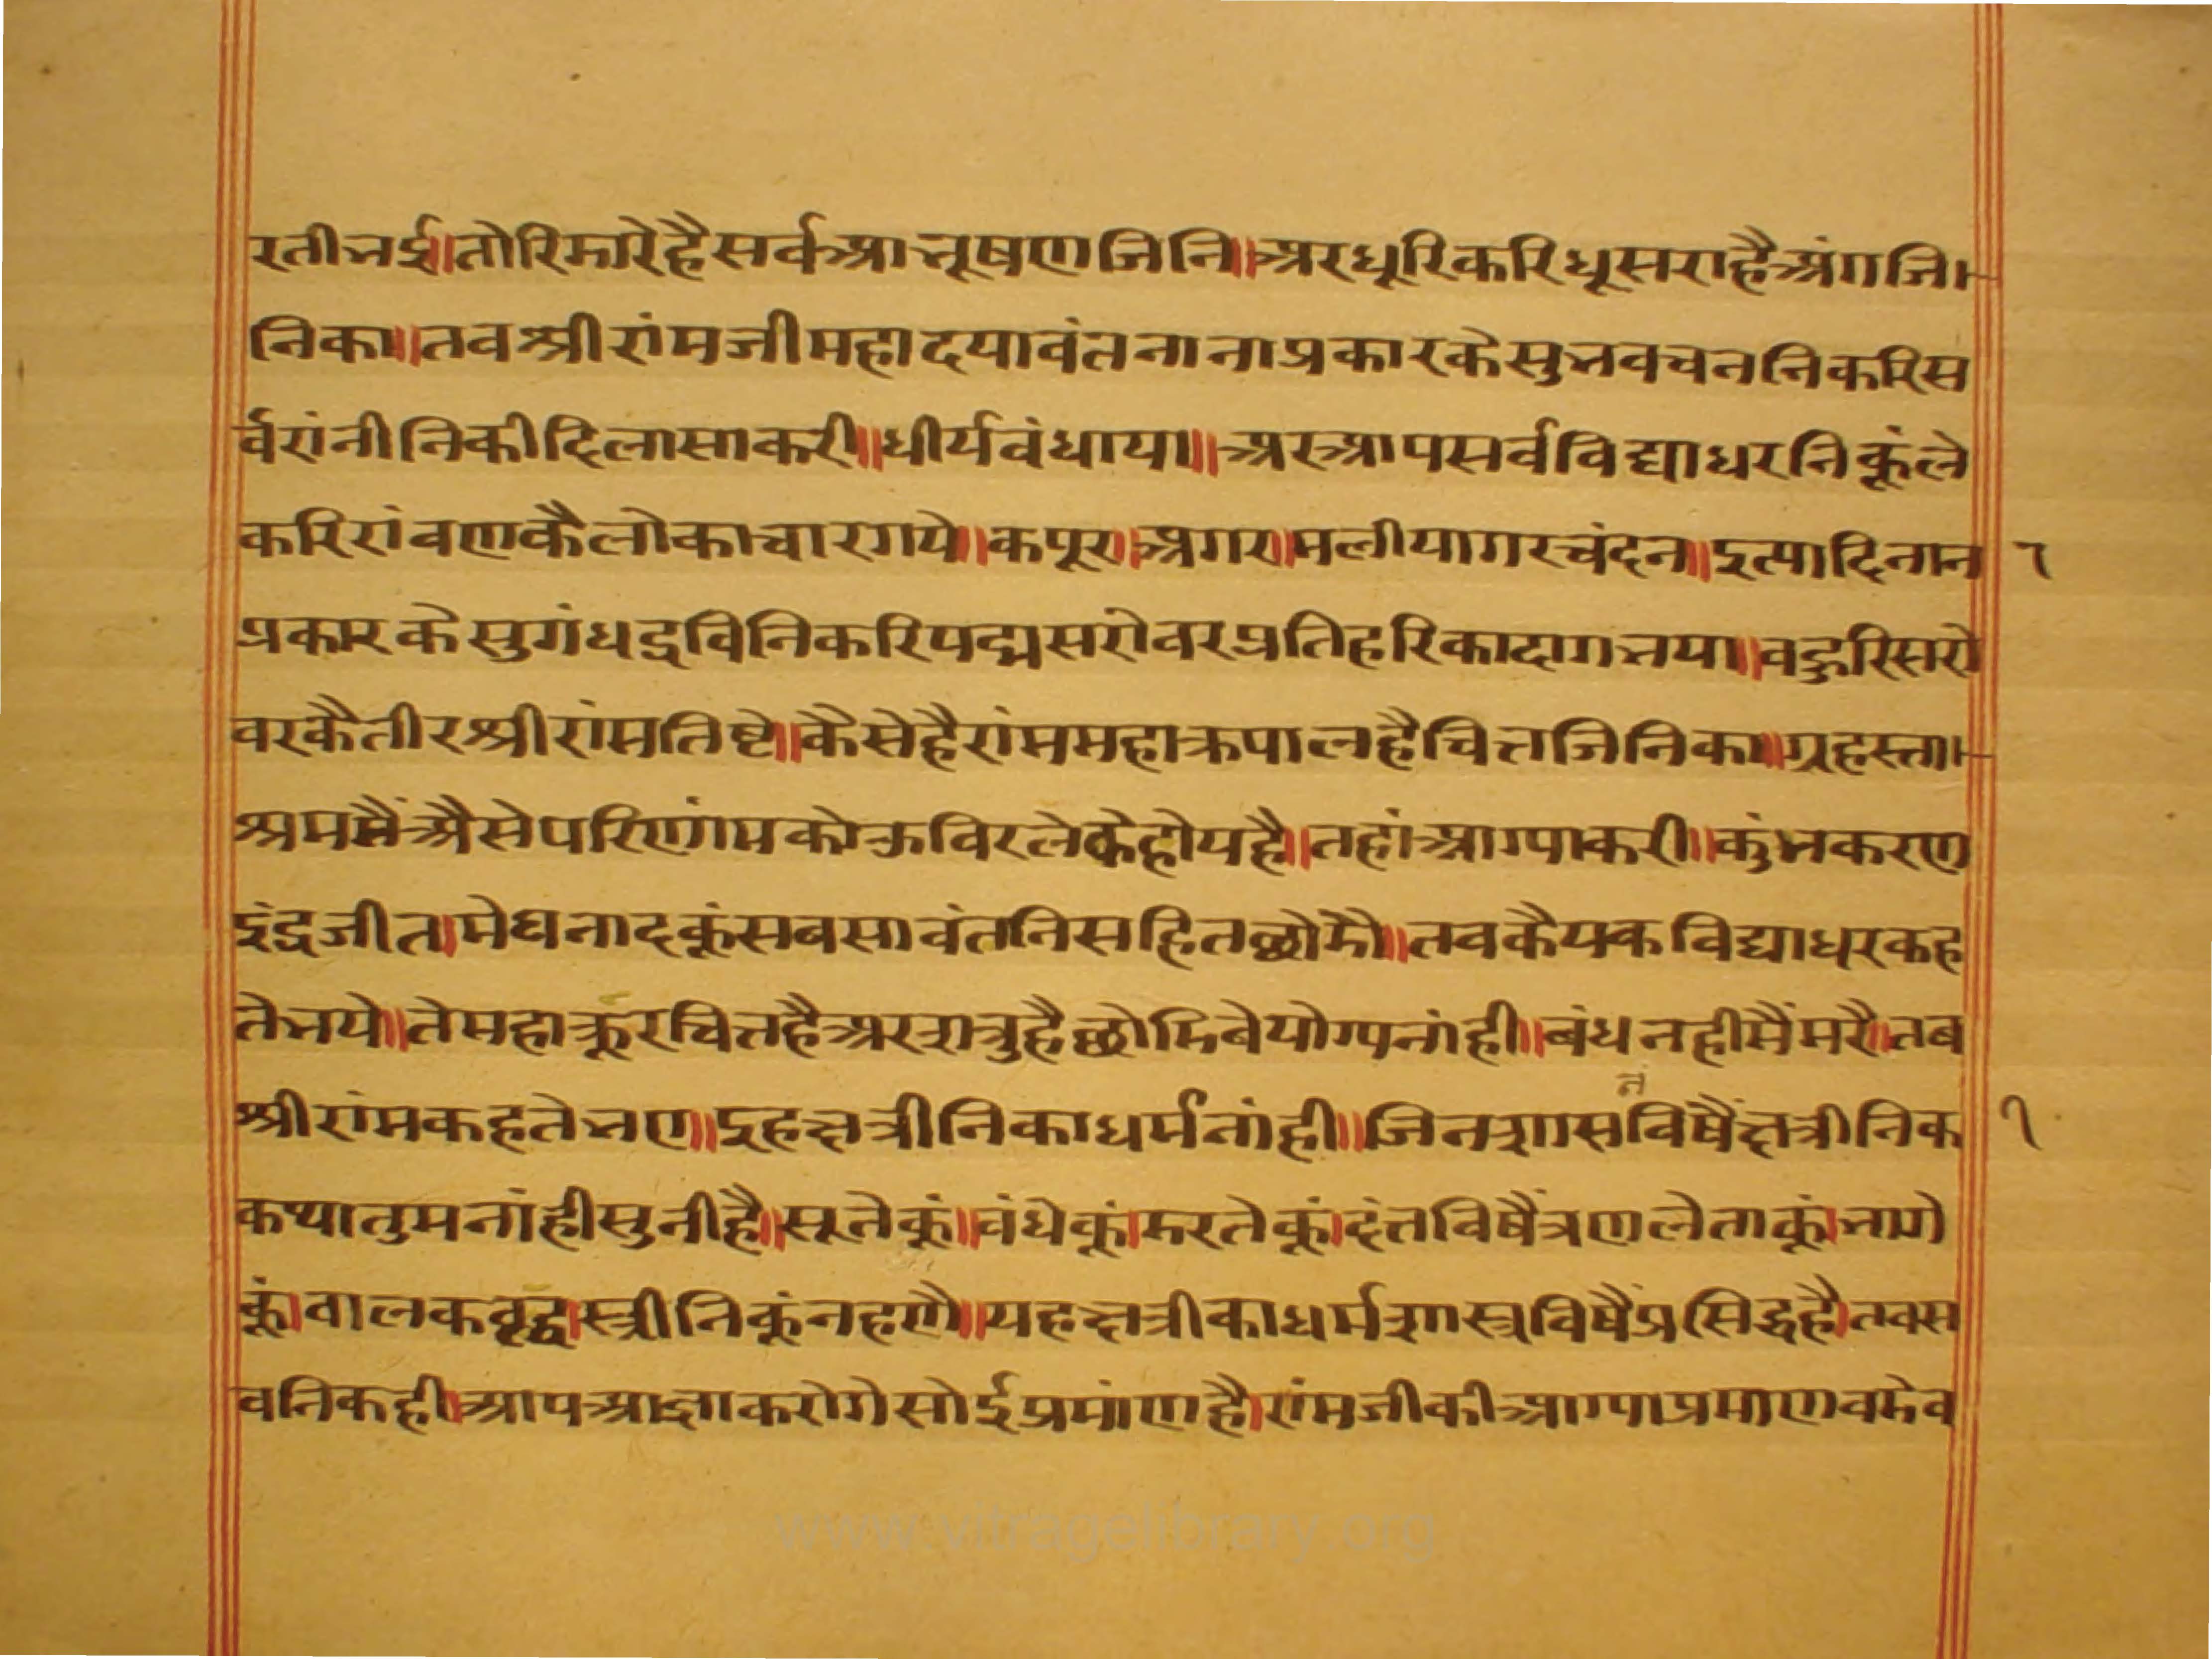 रतीभई॥तोरिडारेहैसर्वआभूषणजिनि॥अरधूरिकरिधूसराहैअंगजि।
निका॥तवश्रीरांमजीमहादयावंतनानाप्रकारकेसुभवचननिकरिस
र्वरांनीनिकीदिलासाकरी॥धीर्यवंधाया॥अरआपसर्वविद्याधरनिकूंले
करिरांवणकैलोकाचारगये॥कपूर।अगर।मलीयागरचंदन॥इत्यादिनान ा
प्रकारकेसुगंधद्रविनिकरिपद्मसरोवरप्रतिहरिकादागभया॥वहुरिसरो
वरकैतीरश्रीरांमतिष्टे॥कैसेहैरांममहाक्रपालहैचित्तजिनिका॥ग्रहस्ता।
श्रममैंअैसेपरिणांमकोऊविरलेकेहोयहै॥तहांआग्याकरी॥कुंभकरण
इंद्रजीत।मेघनादकूंसबसावंतनिसहितछोडौ॥तवकैयकविद्याधरकह
तेभये॥तेमहाक्रूरचित्तहैअरशत्रुहैछोडिबेयोग्यनांही॥बंधनहीमैंमरै॥तब
श्रीरांमकहतेभए॥इहक्षत्रीनिकाधर्मनांही॥जिनशासनविषैंक्षत्रीनिक ी
कथातुमनांहीसुनीहै॥सूतेकूं॥वंधेकूं।डरतेकूं।दंतविषैंत्रणलेताकूं।भागे
कूं।वालकवृद्ध।स्त्रीनिकूंनहणै॥यहक्षत्रीकाधर्मशास्त्रविषैंप्रसिद्धहै।तवस
वनिकही।आपआज्ञाकरोगेसोईप्रमांणहै।रांमजीकीआग्याप्रमाणवडेव
www.vitragelibrary.org